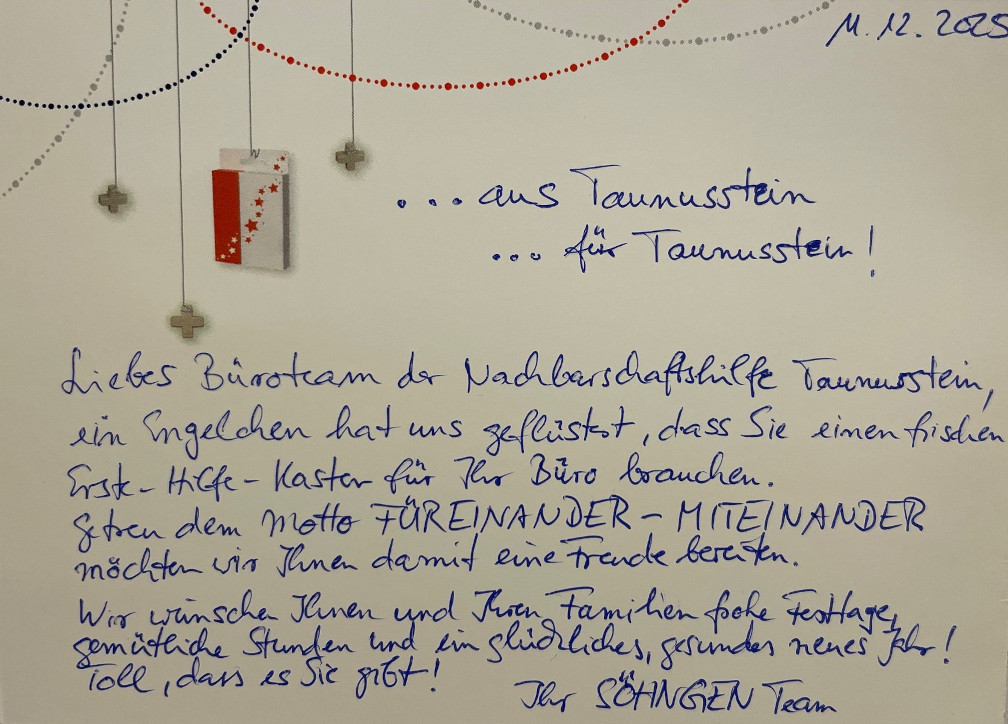 11.12.2025
... aus Taunusstein
... für Taunusstein!
Liebes Büroteam der Nachbarschaftshilfe Taunusstein,
ein Engelchen hat uns geflüstert, dass Sie einen frischen
Erste-Hilfe-Kasten für Ihr Büro brauchen.
Getreu dem Motto FÜREINANDER - MITEINANDER
möchten wir Ihnen damit eine Freude bereiten.
Wir wünschen Ihnen und Ihren Familien frohe Festtage,
gemütliche Stunden und ein glückliches, gesundes neues Jahr!
Toll, dass es Sie gibt!
Ihr SÖHNGEN Team